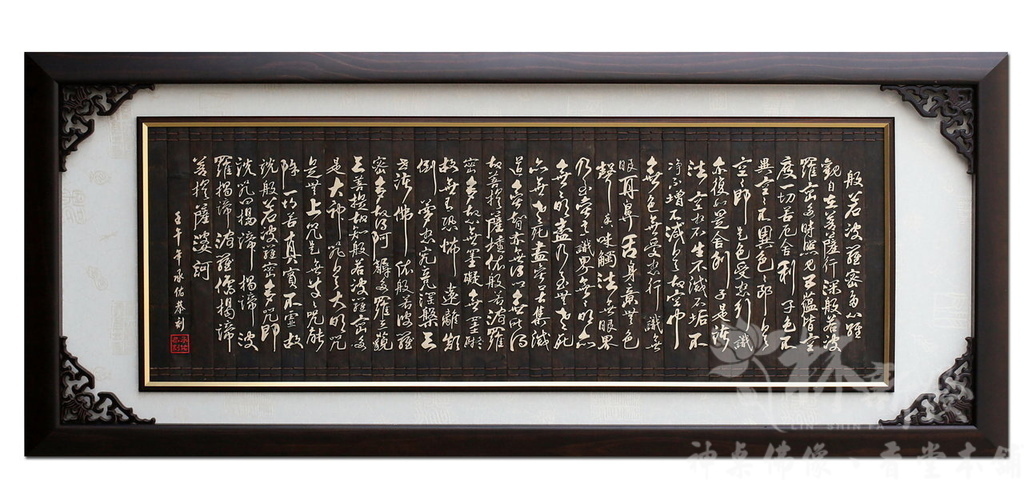 般若波羅密多心經
觀自在菩薩行深般若波
羅密多時照見五蘊皆空
度一切苦厄舍利子色不
異空空不異色色即是
空空即是色受想行識
亦復如是舍利子是諸
法空相不生不滅不垢不
淨不增不減是故空中
無色無受想行識無
眼耳鼻舌身意無色
聲香味觸法無眼界
乃至無意識界無無明亦
無無明盡乃至無老死
亦無老死盡無苦集滅
道無智亦無得以無所得
故菩提薩埵依般若波羅
密多故心無罣礙無罣礙
故無有恐怖遠離顛
倒夢想究竟涅槃三
世諸佛依般若波羅
密多故得阿耨多羅三藐
三菩提故知般若波羅密多
是大神咒是大明咒
是無上咒是無等等咒能
除一切苦真實不虛故
說般若波羅密多咒即
說咒曰揭諦揭諦波
羅揭諦波羅僧揭諦
菩提薩婆訶
壬午年 承佑
林
LIN SHIN
神桌佛像、香堂本舖